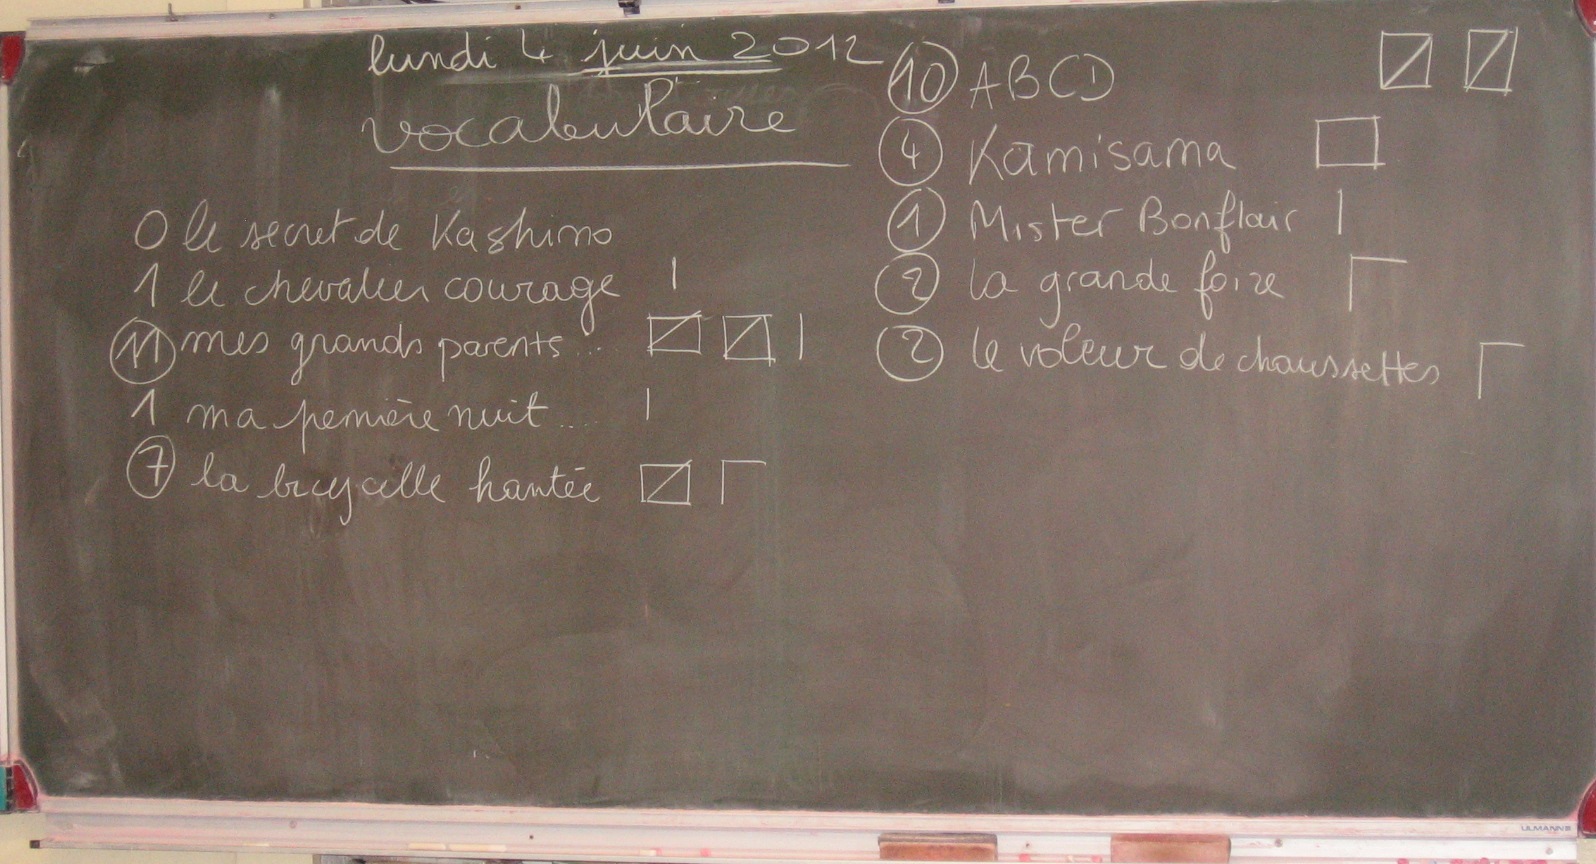 lundi 4 juin 2012
vocabulaire
0 le secret de Kashimo
1 le chevalier courage
11 mes grands parents...
1 ma pemière nuit....
7 la bicyclle hantée
10 ABCD
4 Kamisama
1 Mister Bonflair
2 la grande foire
2 le voleur de chaussettes
ULMANN